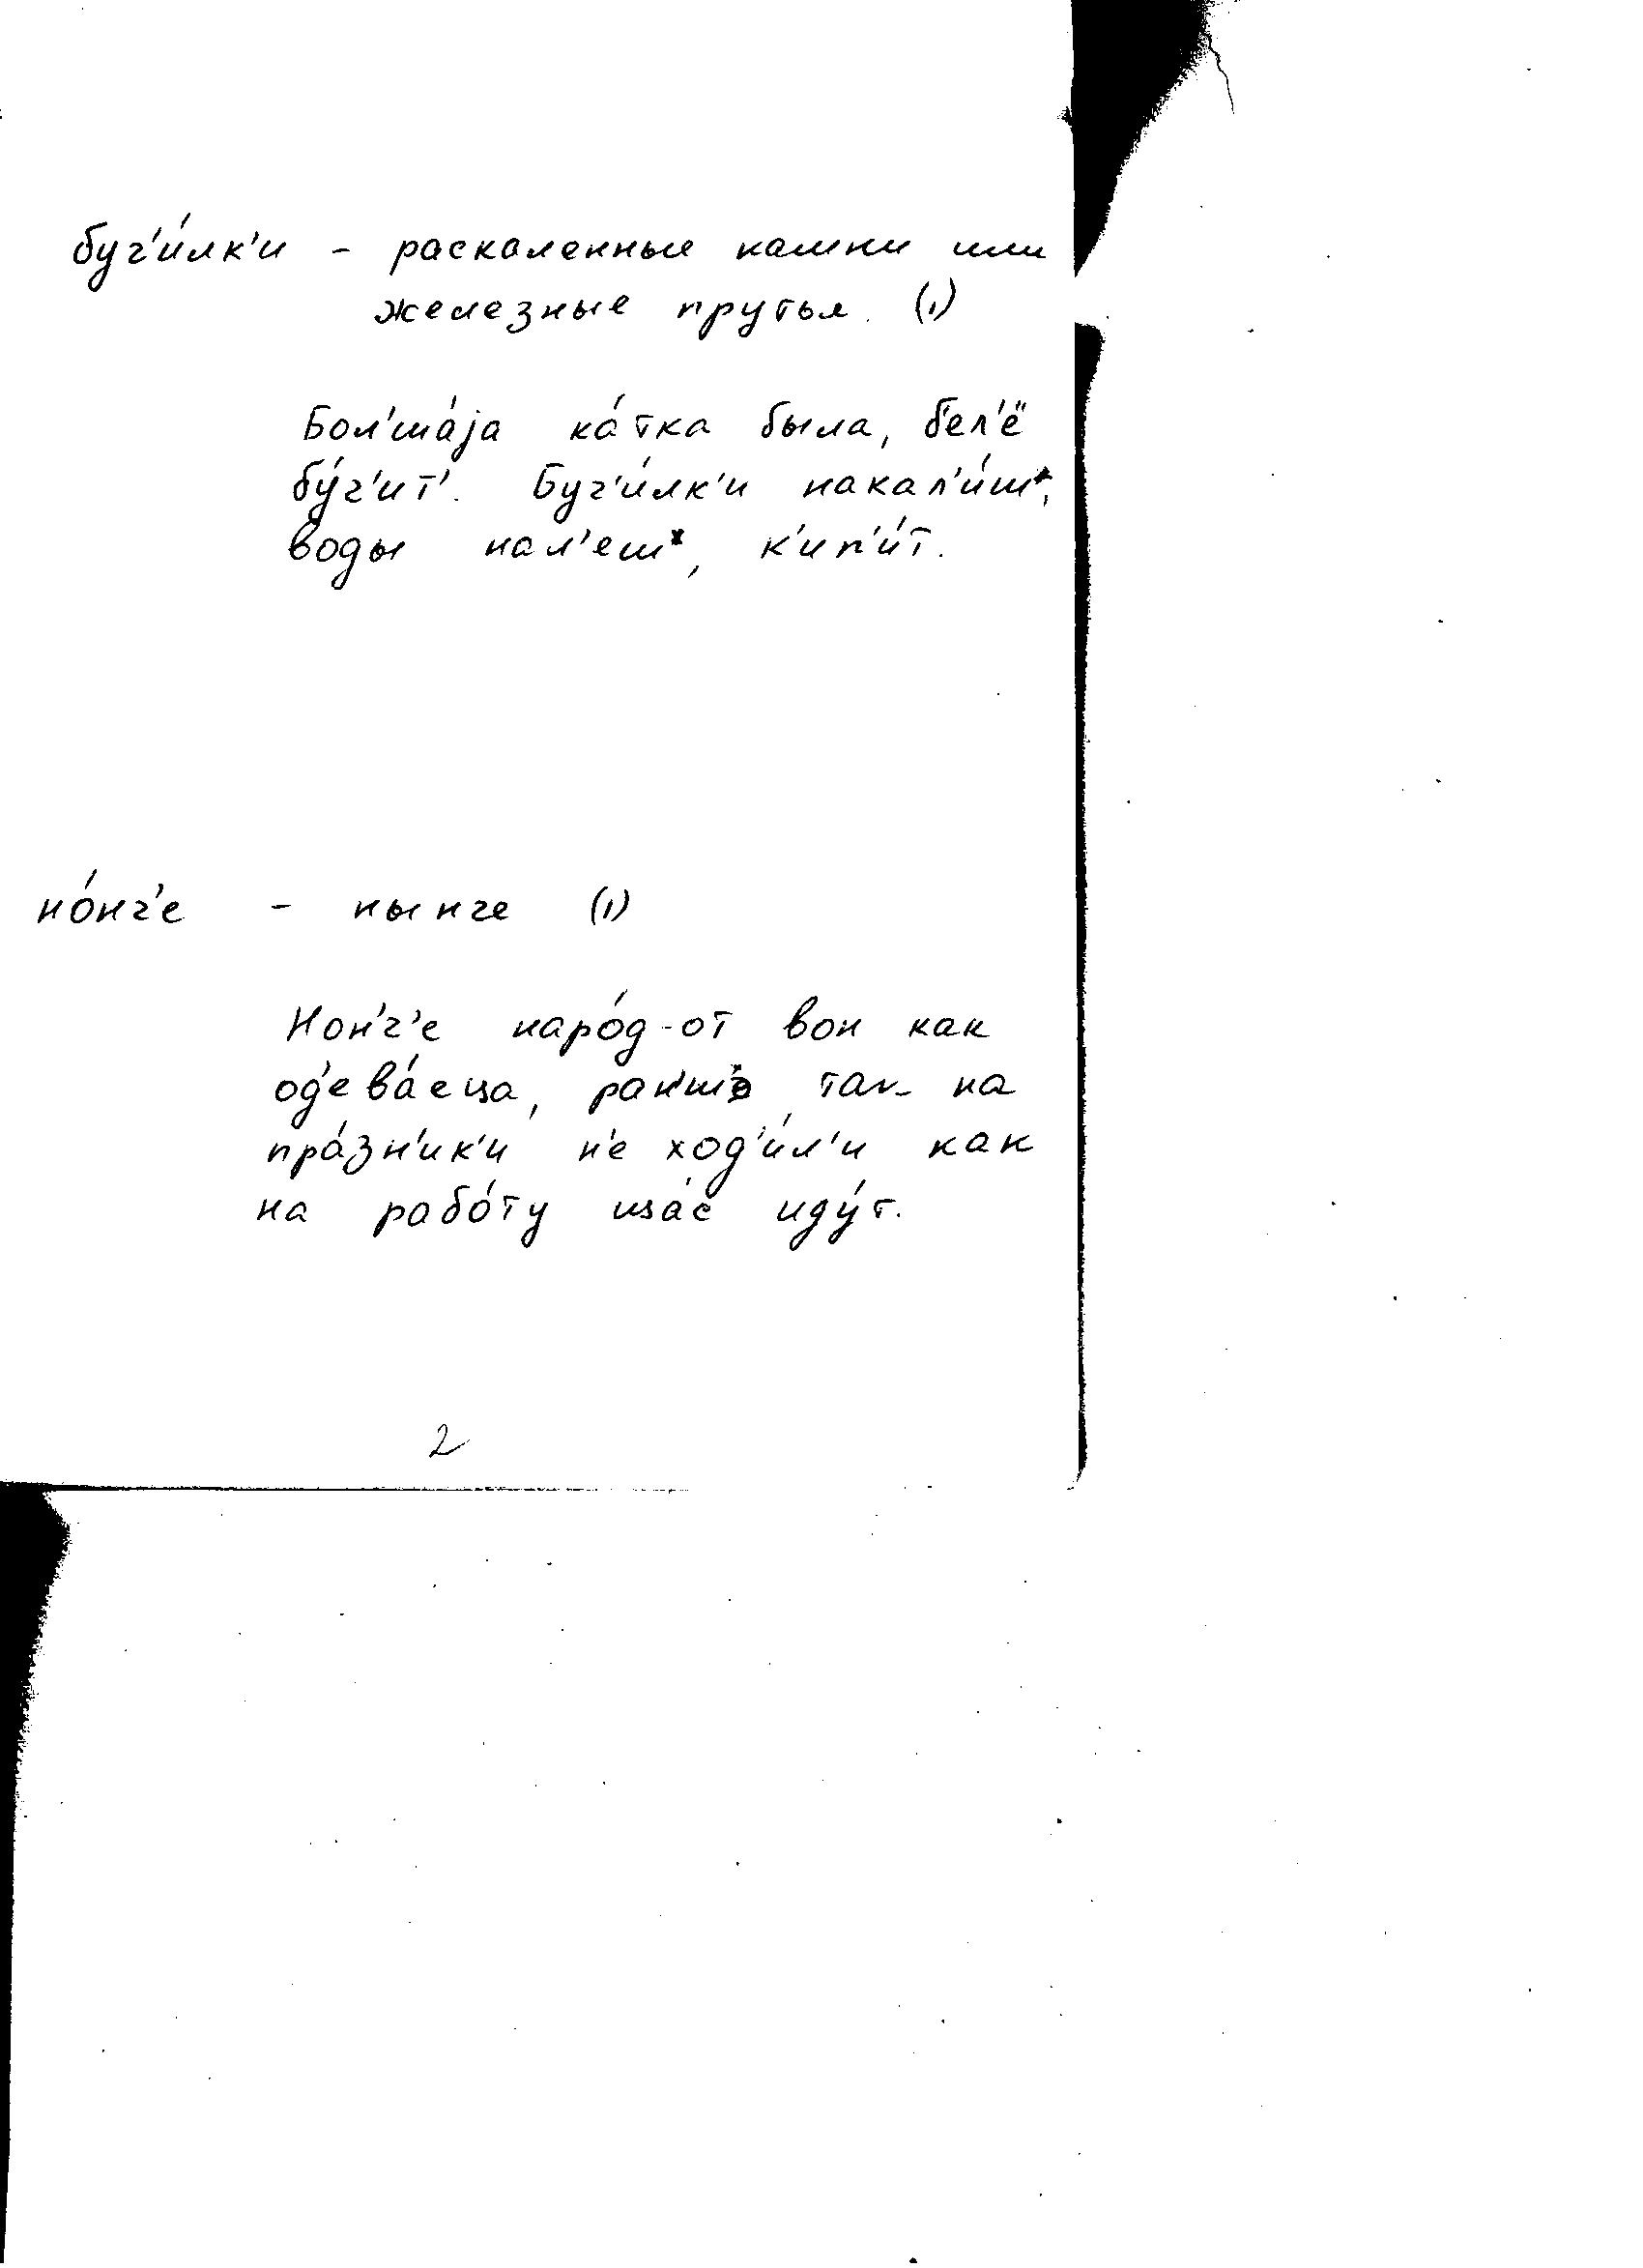 буч'и́лк'и - раскаленные камни или
железные прутья. (1)
Бол'ша́jа ка́тка была, б'ел'ё
бу́ч'ит'. Буч'и́лк'и накал'и́ш,
воды нал'еш, к'ип'и́т.
но́нч'е - нынче (1)
Нон'ч'е наро́д-от вон как
од'ева́еца, ран'шэ так на
пра́зн'ик'и н'е ход'и́л'и как
на рабо́ту ща́с иду́т.
2